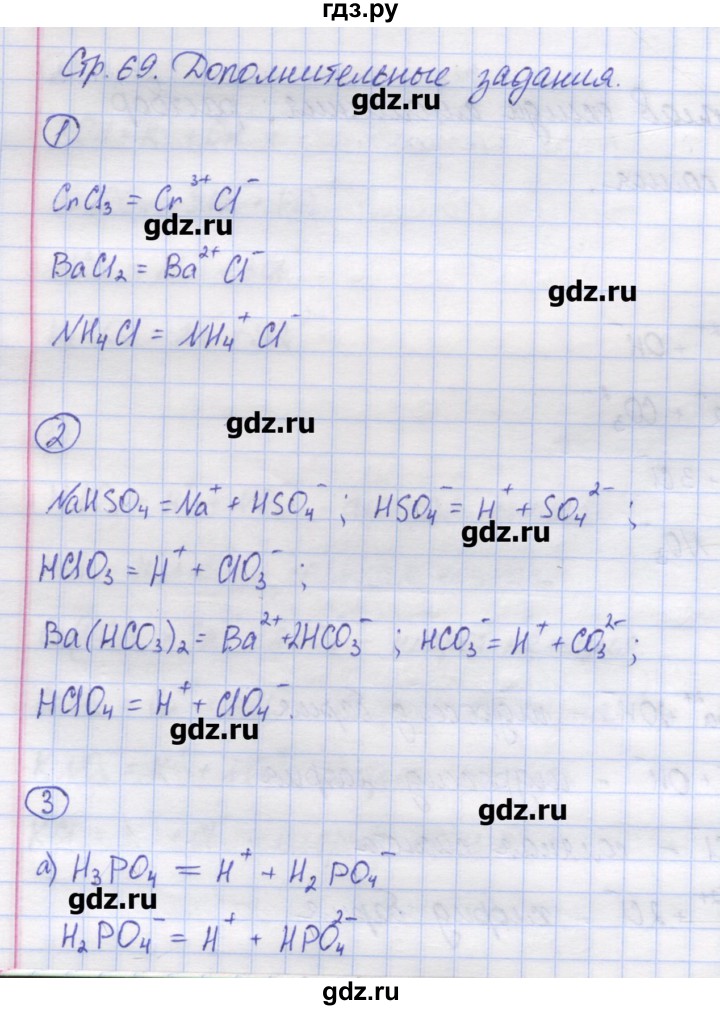 гдз.ру
Стр. 69. Дополнительные задания.
gdz.ru
1
CrCl₃ = Cr³⁺ Cl⁻
gdz.ru
BaCl₂ = Ba²⁺ Cl⁻
gdz.ru
NH₄Cl = NH₄⁺ Cl⁻
gdz.ru
2
NaHSO₄ = Na⁺ + HSO₄⁻ ; HSO₄⁻ = H⁺ + SO₄²⁻ ;
gdz.ru
HClO₃ = H⁺ + ClO₃⁻ ;
Ba(HCO₃)₂ = Ba²⁺ + 2HCO₃⁻ ; HCO₃⁻ = H⁺ + CO₃²⁻ ;
HClO₄ = H⁺ + ClO₄⁻.
gdz.ru
3
gdz.ru
а) H₃PO₄ = H⁺ + H₂PO₄⁻
gdz.ru
H₂PO₄⁻ = H⁺ + HPO₄²⁻
gdz.ru